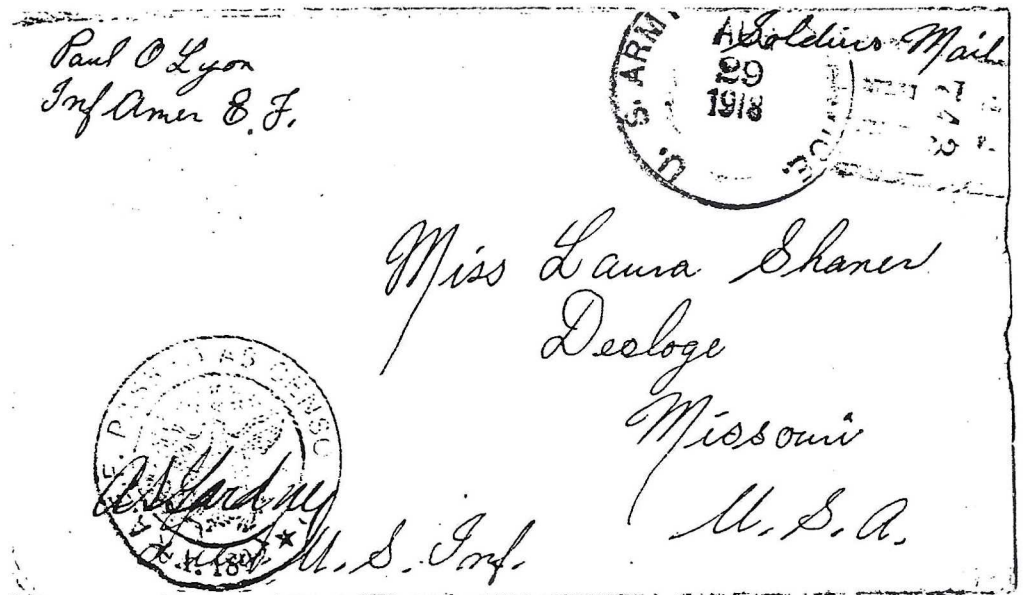 Paul O Lyon
Inf Amer E. F.
Soldiers Mail
U. S. ARMY
29
1918
Miss Laura Shaner
Desloge
Missouri
U. S. A.
PASSED AS CENSO
U. S. Inf.